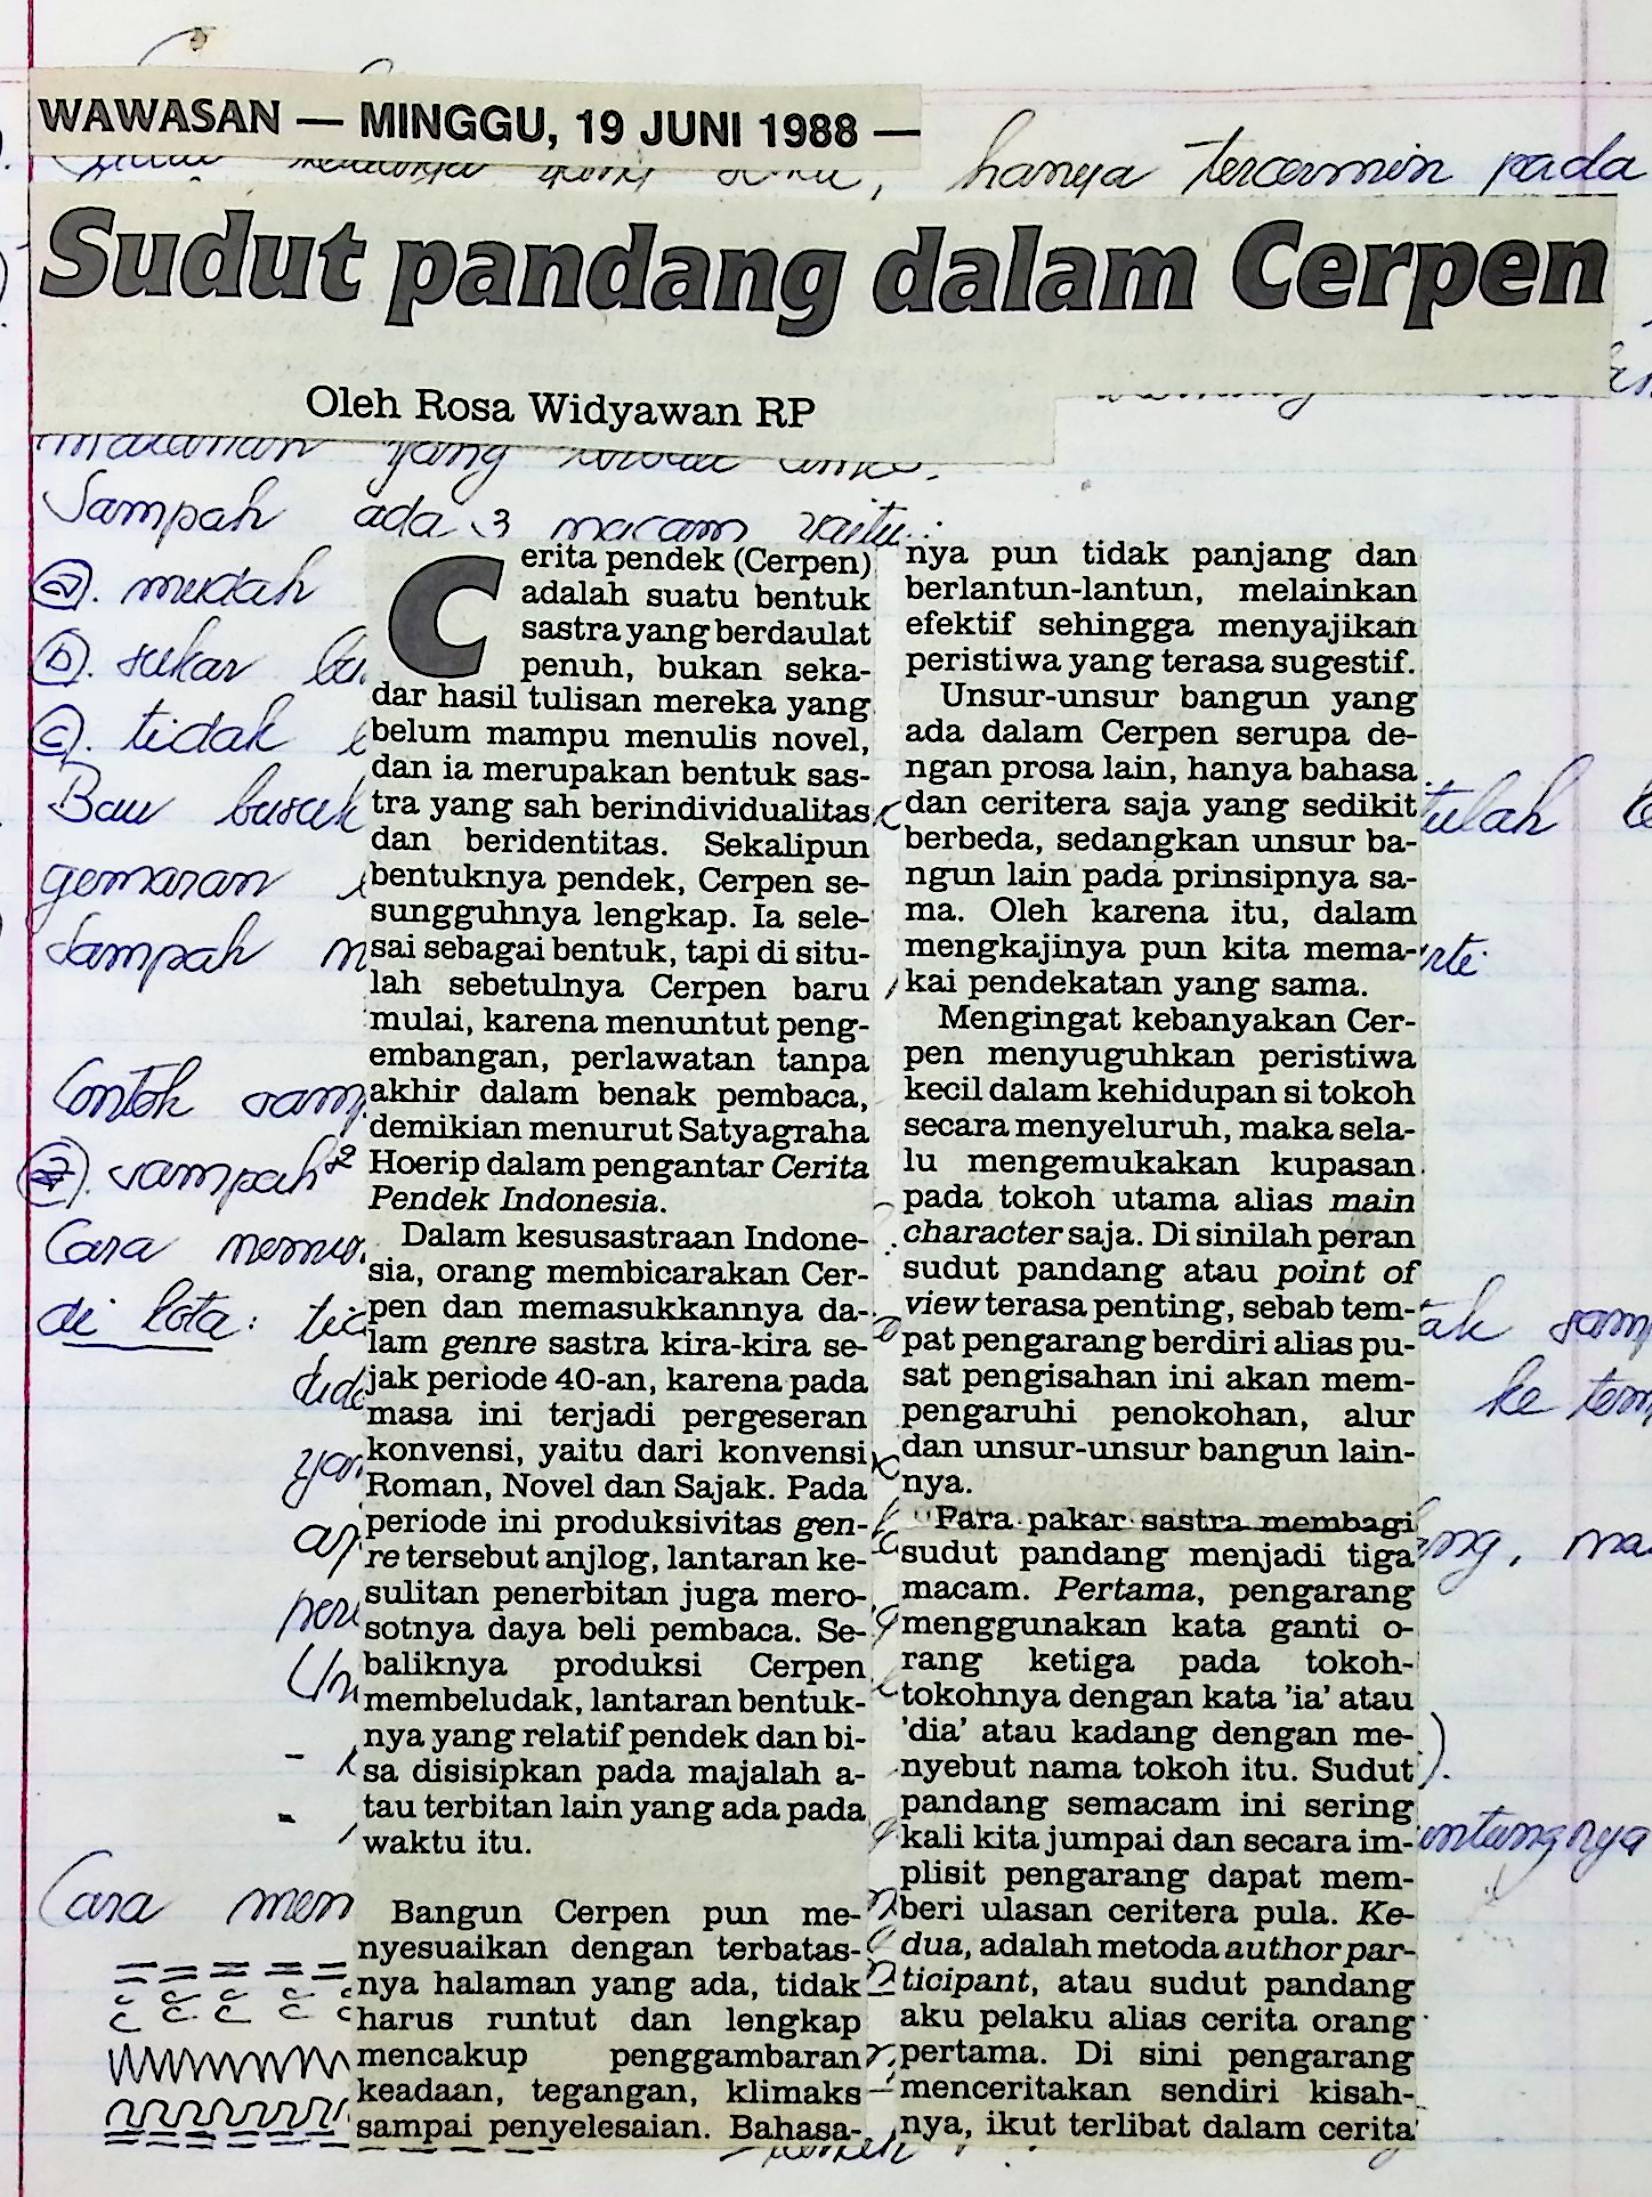 WAWASAN — MINGGU, 19 JUNI 1988 —
hanya tercermin pada
Sudut pandang dalam Cerpen
Oleh Rosa Widyawan RP
yang
Sampah ada 3 macam yaitu :
a. mudah
b. sukar
c. tidak
Bau busuk
gemaran
Sampah
Contoh
sampah²
Cara
di kota :
Cara men
Cerita pendek (Cerpen)
adalah suatu bentuk
sastra yang berdaulat
penuh, bukan seka-
dar hasil tulisan mereka yang
belum mampu menulis novel,
dan ia merupakan bentuk sas-
tra yang sah berindividualitas
dan beridentitas. Sekalipun
bentuknya pendek, Cerpen se-
sungguhnya lengkap. Ia sele-
sai sebagai bentuk, tapi di situ-
lah sebetulnya Cerpen baru
mulai, karena menuntut peng-
embangan, perlawatan tanpa
akhir dalam benak pembaca,
demikian menurut Satyagraha
Hoerip dalam pengantar Cerita
Pendek Indonesia.
Dalam kesusastraan Indone-
sia, orang membicarakan Cer-
pen dan memasukkannya da-
lam genre sastra kira-kira se-
jak periode 40-an, karena pada
masa ini terjadi pergeseran
konvensi, yaitu dari konvensi
Roman, Novel dan Sajak. Pada
periode ini produksivitas gen-
re tersebut anjlog, lantaran ke-
sulitan penerbitan juga mero-
sotnya daya beli pembaca. Se-
baliknya produksi Cerpen
membeludak, lantaran bentuk-
nya yang relatif pendek dan bi-
sa disisipkan pada majalah a-
tau terbitan lain yang ada pada
waktu itu.
Bangun Cerpen pun me-
nyesuaikan dengan terbatas-
nya halaman yang ada, tidak
harus runtut dan lengkap
mencakup penggambaran
keadaan, tegangan, klimaks
sampai penyelesaian. Bahasa-
nya pun tidak panjang dan
berlantun-lantun, melainkan
efektif sehingga menyajikan
peristiwa yang terasa sugestif.
Unsur-unsur bangun yang
ada dalam Cerpen serupa de-
ngan prosa lain, hanya bahasa
dan ceritera saja yang sedikit
berbeda, sedangkan unsur ba-
ngun lain pada prinsipnya sa-
ma. Oleh karena itu, dalam
mengkajinya pun kita mema-
kai pendekatan yang sama.
Mengingat kebanyakan Cer-
pen menyuguhkan peristiwa
kecil dalam kehidupan si tokoh
secara menyeluruh, maka sela-
lu mengemukakan kupasan
pada tokoh utama alias main
character saja. Di sinilah peran
sudut pandang atau point of
view terasa penting, sebab tem-
pat pengarang berdiri alias pu-
sat pengisahan ini akan mem-
pengaruhi penokohan, alur
dan unsur-unsur bangun lain-
nya.
Para pakar sastra membagi
sudut pandang menjadi tiga
macam. Pertama, pengarang
menggunakan kata ganti o-
rang ketiga pada tokoh-
tokohnya dengan kata 'ia' atau
'dia' atau kadang dengan me-
nyebut nama tokoh itu. Sudut
pandang semacam ini sering
kali kita jumpai dan secara im-
plisit pengarang dapat mem-
beri ulasan ceritera pula. Ke-
dua, adalah metoda author par-
ticipant, atau sudut pandang
aku pelaku alias cerita orang
pertama. Di sini pengarang
menceritakan sendiri kisah-
nya, ikut terlibat dalam cerita